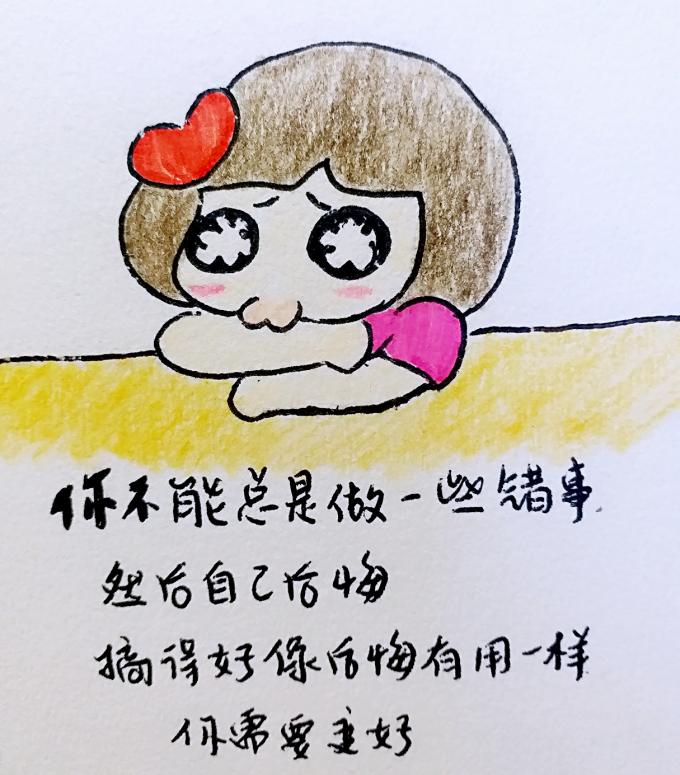 你不能总是做一些错事.
然后自己后悔
搞得好像后悔有用一样
你需要变好